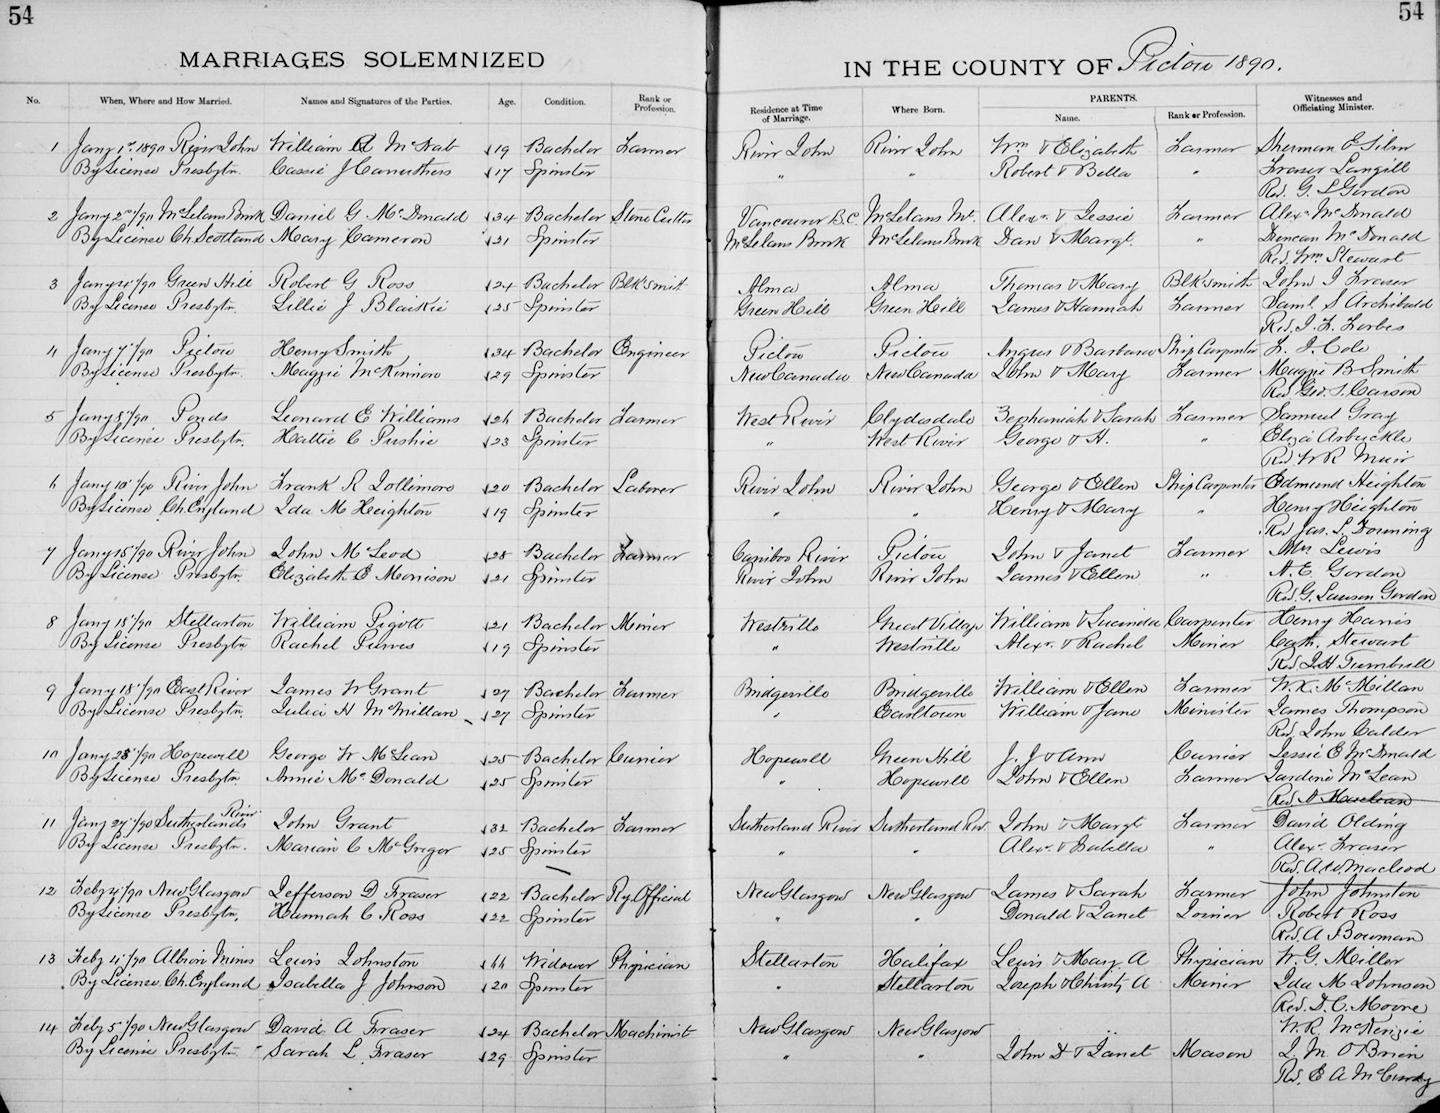 54
54
MARRIAGES SOLEMNIZED
IN THE COUNTY OF Pictou 1890.
No. When, Where and How Married. Names and Signatures of the Parties. Age. Condition. Rank or Profession. Residence at Time of Marriage. Where Born. PARENTS. Name. Rank or Profession. Witnesses and Officiating Minister.
1 Jany 1st 1890 River John William McNab 19 Bachelor Farmer River John River John Wm & Elizabeth Farmer Sherman
By License Presbytn. Cassie J Carruthers 17 Spinster " " Robert & Bella " Fraser Langill
Rev. G L Gordon
2 Jany 2nd/90 McLelans Brook Daniel G McDonald 34 Bachelor Stone Cutter Vancouver B.C. McLelans Mt. Alexr. & Jessie Farmer Alexr McDonald
By License Ch. Scotland Mary Cameron 21 Spinster McLelans Brook McLelans Brook Dan & Margt. " Duncan McDonald
Rev. Wm Stewart
3 Jany /90 Green Hill Robert G Ross 24 Bachelor Blksmith Alma Alma Thomas & Mary Blksmith John J Fraser
By License Presbytn. Lillie J Blaikie 25 Spinster Green Hill Green Hill James & Hannah Farmer Saml S Archibald
Rev. J. F. Forbes
4 Jany 7/90 Pictou Henry Smith 34 Bachelor Engineer Pictou Pictou Angus & Barbara Ship Carpenter Cole
By License Presbytn. Maggie McKinnon 29 Spinster New Canada New Canada John & Mary Farmer Maggie B Smith
Rev Geo. S. Carson
5 Jany 8/90 Fonds Leonard E Williams 26 Bachelor Farmer West River Clydesdale Zephaniah & Sarah Farmer Samuel Gray
By License Presbytn. Hattie C Pushie 23 Spinster " West River George & H. " Eliza Arbuckle
Rev W R Muir
6 Jany 10/90 River John Frank R Tollimore 20 Bachelor Laborer River John River John George & Ellen Ship Carpenter Edmund Heighton
By License Ch. England Ida M Heighton 19 Spinster " " Henry & Mary " Henry Heighton
Rev Jas. L. Downing
7 Jany 15/90 River John John McLeod 28 Bachelor Farmer Cariboo River Pictou John & Janet Farmer Lewis
By License Presbytn. Elizabeth E Morrison 21 Spinster River John River John James & Ellen " A. E. Gordon
Rev. G. Lawson Gordon
8 Jany 15/90 Stellarton William Pigott 21 Bachelor Miner Westville Great Village William & Lucinda Carpenter Henry Harris
By License Presbytn Rachel Purves 19 Spinster " Westville Alexr. & Rachel Miner Cath. Stewart
Rev J H Turnbull
9 Jany 18/90 East River James W Grant 27 Bachelor Farmer Bridgeville Bridgeville William & Ellen Farmer W. K. McMillan
By License Presbytn. Julia H McMillan 27 Spinster " Earltown William & Jane Minister James Thompson
Rev. John Calder
10 Jany 23/90 Hopewell George W McLean 25 Bachelor Currier Hopewell Green Hill J. J & Ann Currier Jessie E McDonald
By License Presbytn Annie McDonald 25 Spinster " Hopewell John & Ellen Farmer Jardine McLean
Rev A Maclean
11 Jany 27/90 Sutherlands River John Grant 32 Bachelor Farmer Sutherland River Sutherland Rivr. John & Margt Farmer David Olding
By License Presbytn. Marian C McGregor 25 Spinster " " Alexr. & Isabella " Alexr. Fraser
Rev. A. W. Macleod
12 Feby 4/90 New Glasgow Jefferson D Fraser 22 Bachelor Ry Official New Glasgow New Glasgow James & Sarah Farmer John Johnston
By License Presbytn. Hannah C Ross 22 Spinster " " Donald & Janet Robert Ross
Rev. A Bowman
13 Feby 4/90 Albion Mines Lewis Johnston 66 Widower Physician Stellarton Halifax Lewis & Mary A Physician W. G. Miller
By License Ch. England Isabella J Johnson 20 Spinster " Stellarton Joseph & Christy A Miner Ida M Johnson
Rev. D. C. Moore
14 Feby 5/90 New Glasgow David A Fraser 24 Bachelor Machinist New Glasgow New Glasgow W. R. McKenzie
By License Presbytn. Sarah L. Fraser 29 Spinster " " John D & Janet Mason J. M. OBrien
Rev. E A McCurdy